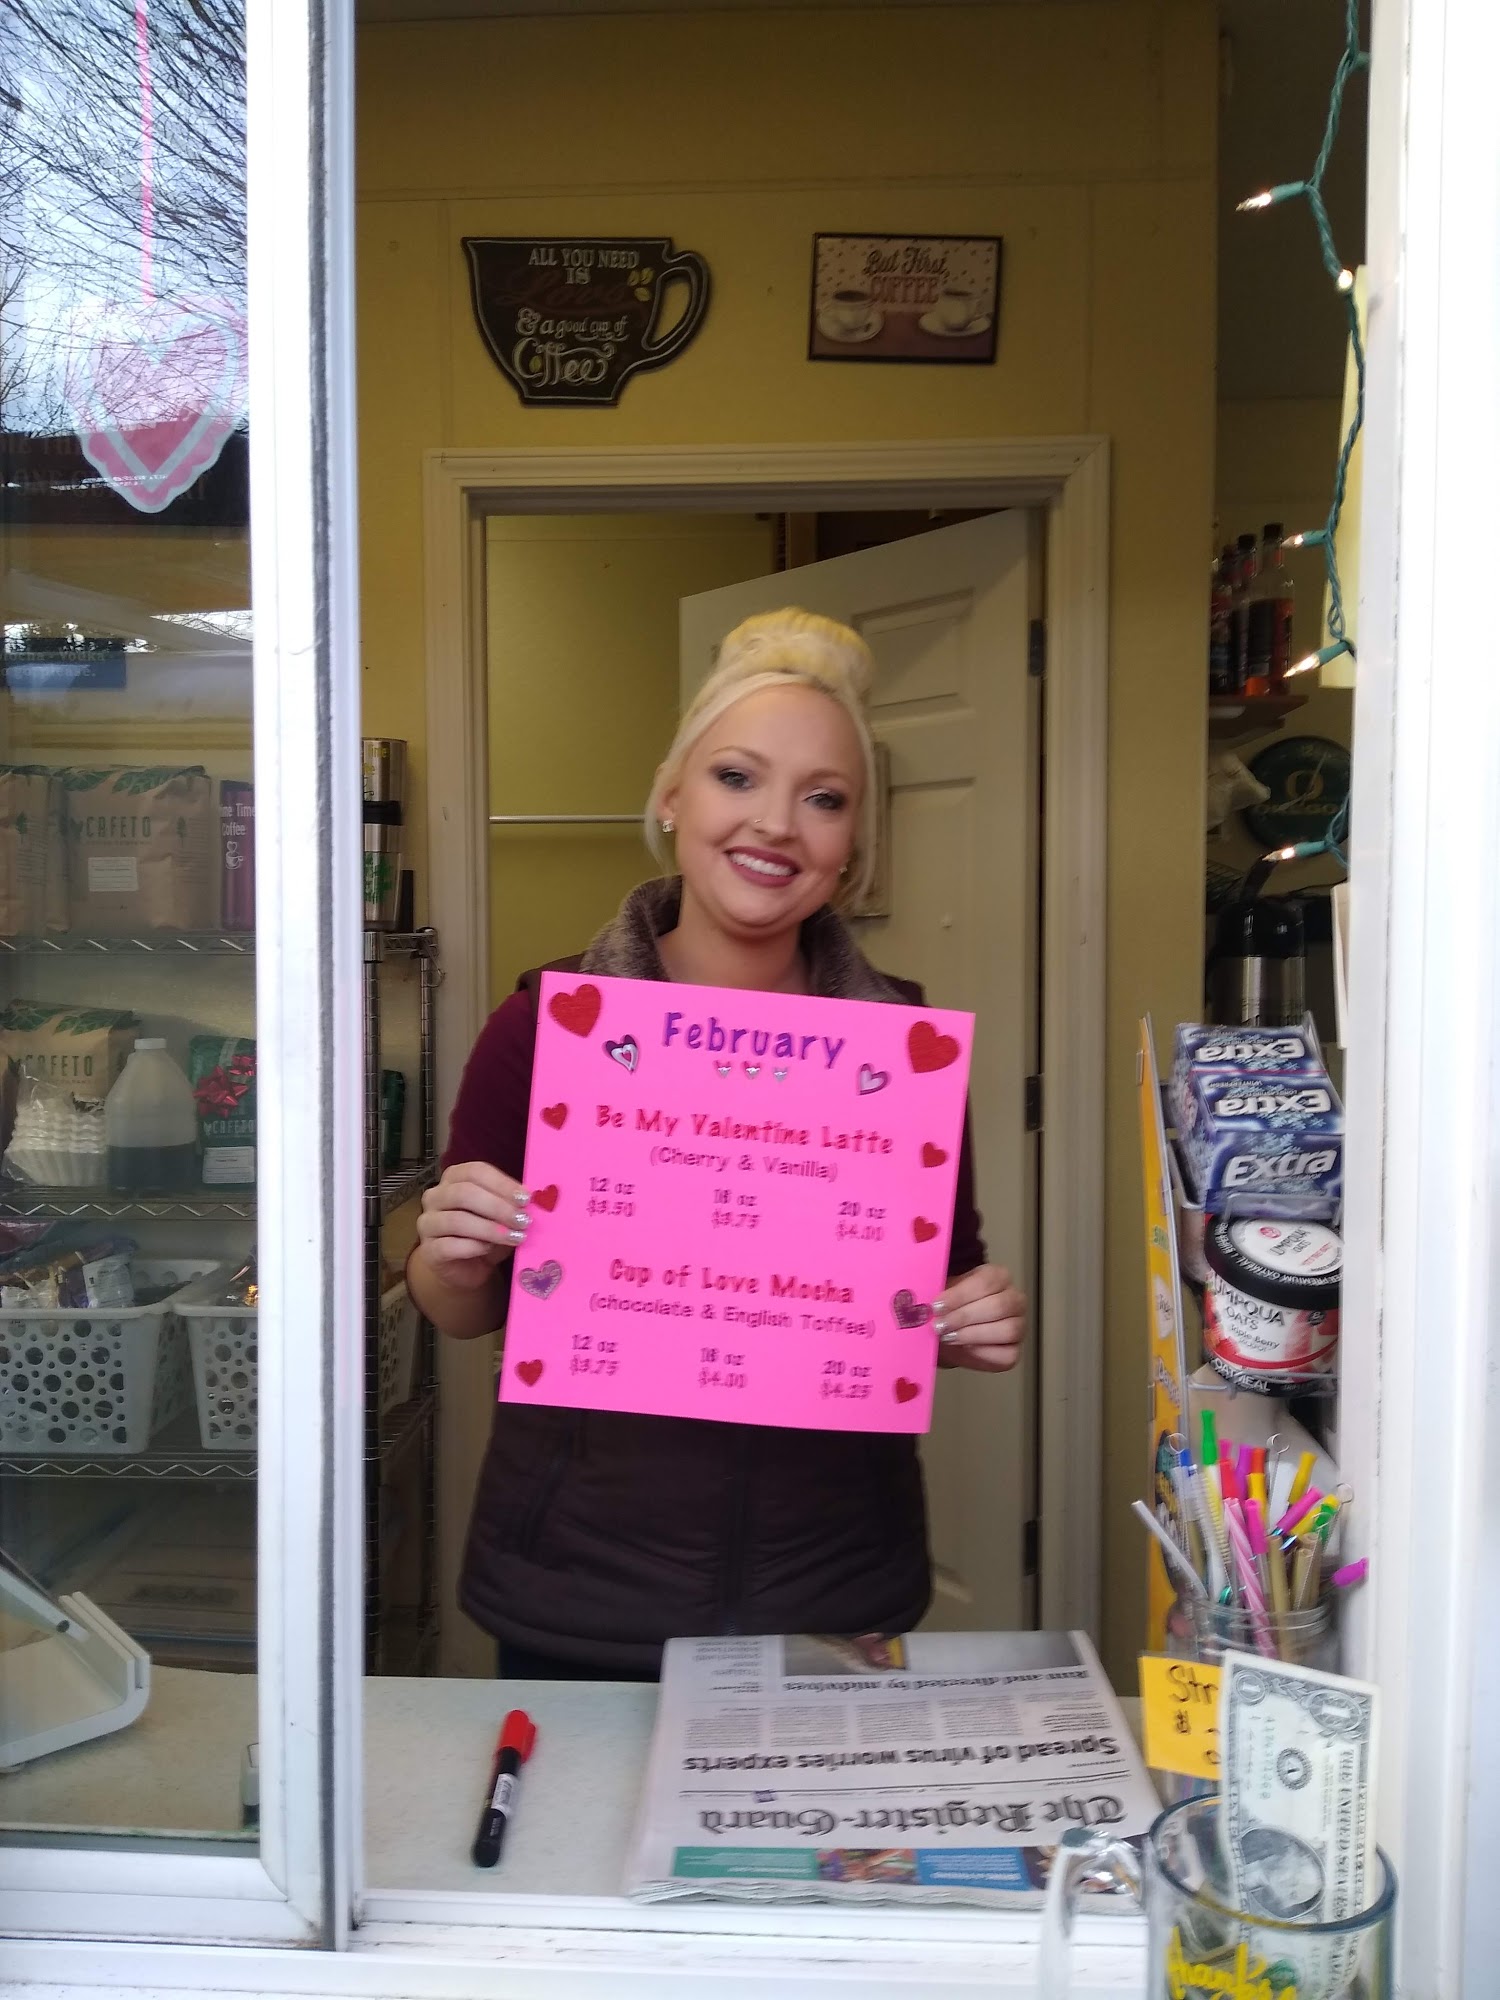 ALL YOU NEED
IS
Love
& a good cup of
Coffee
But First,
COFFEE
February
Be My Valentine Latte
(Cherry & Vanilla)
12 oz 16 oz 20 oz
$3.50 $3.75 $4.00
Cup of Love Mocha
(chocolate & English Toffee)
12 oz 16 oz 20 oz
$3.75 $4.00 $4.25
CAFETO
Time
Coffee
CAFETO
CAFETO
please.
Extra
Extra
Extra
UMPQUA
OATS
UMPQUA
OATS
Triple Berry
OATMEAL
The Register-Guard
Spread of virus worries experts
Run and directed by midwives
Str
1
THE UNITED STATES
Thanks